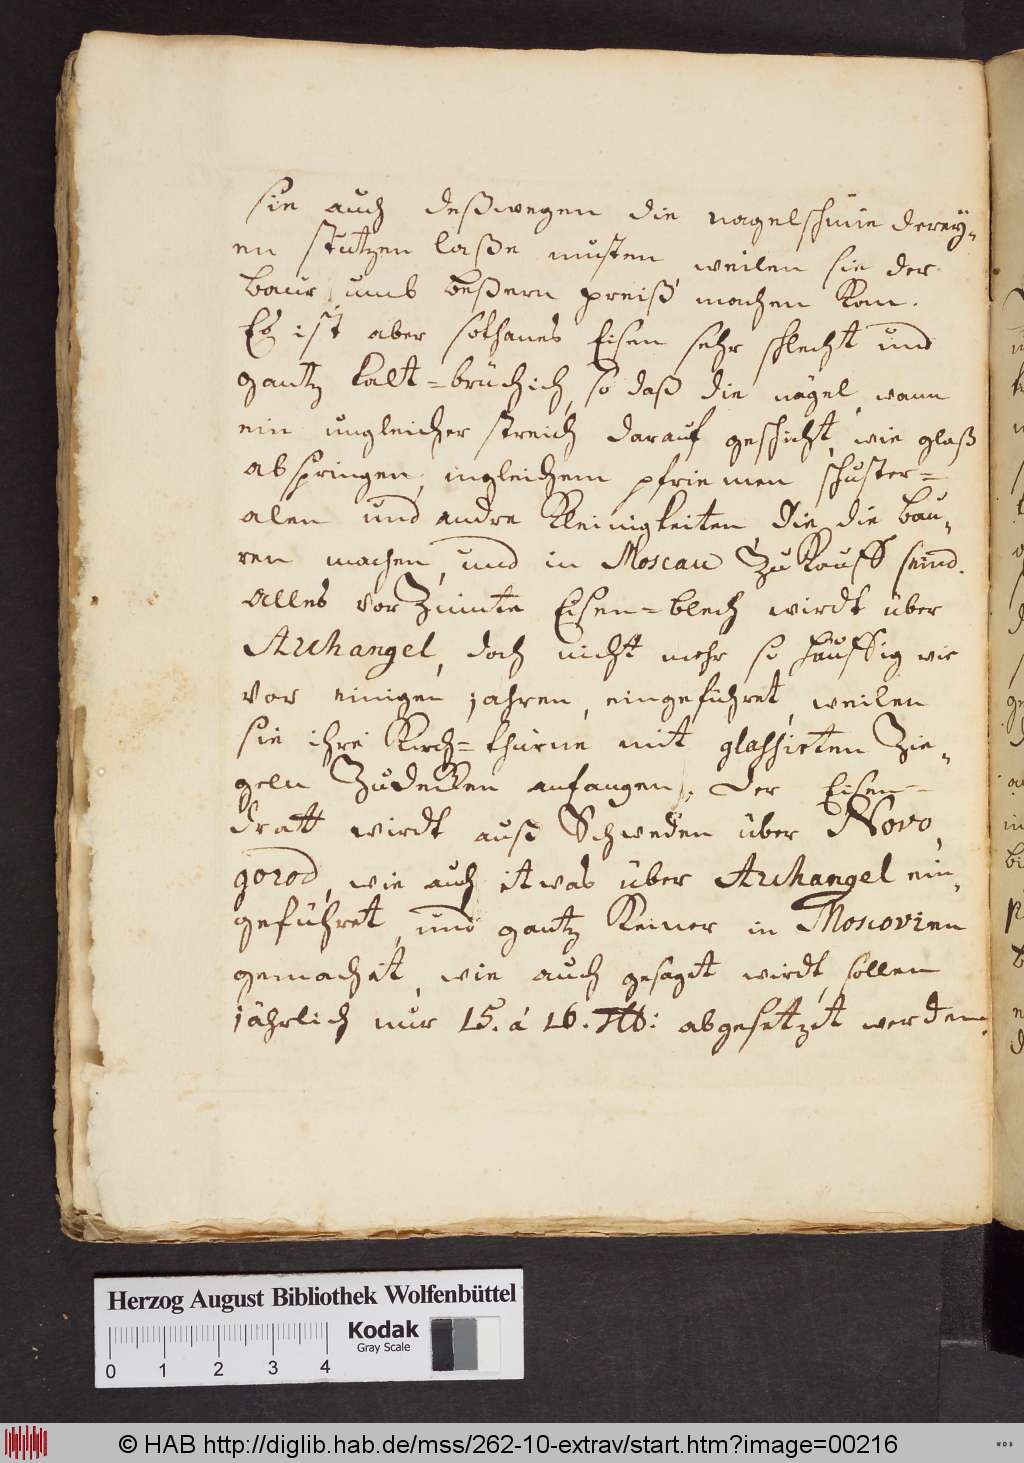 sie auch deßwegen die nagelschmiederey-
en stutzen laße musten, weilen sie der
baur umb beßern preiß machen kan.
Es ist aber sothanes Eisen sehr schlecht und
gantz kalt=brüchich, so daß die nägel, wann
ein ungleicher streich darauf geschicht, wie glaß
abspringen, ingleichem pfriemen schuster=
alen und andre Kleinigkeiten, die die bau-
ren machen, und in Moscau zu Kauff seind.
Alles verzinnte Eisen=blech wirdt über
Archangel, doch nicht mehr so häuffig wie
vor einigen jahren, eingeführet, weilen
sie ihre Kirch=thürne mit glassirten Zie-
geln zudecken anfangen. Der Eisen-
dratt wirdt auß Schweden über Novo,
gorod, wie auch etwas über Archangel ein-
geführet, und gantz keiner in Moscovien
gemachet, wie auch gesagt wirdt, sollen
jährlich nur 15. à 16. abgesetzet werden.
Herzog August Bibliothek Wolfenbüttel
0 1 2 3 4
Kodak
Gray Scale
© HAB http://diglib.hab.de/mss/262-10-extrav/start.htm?image=00216